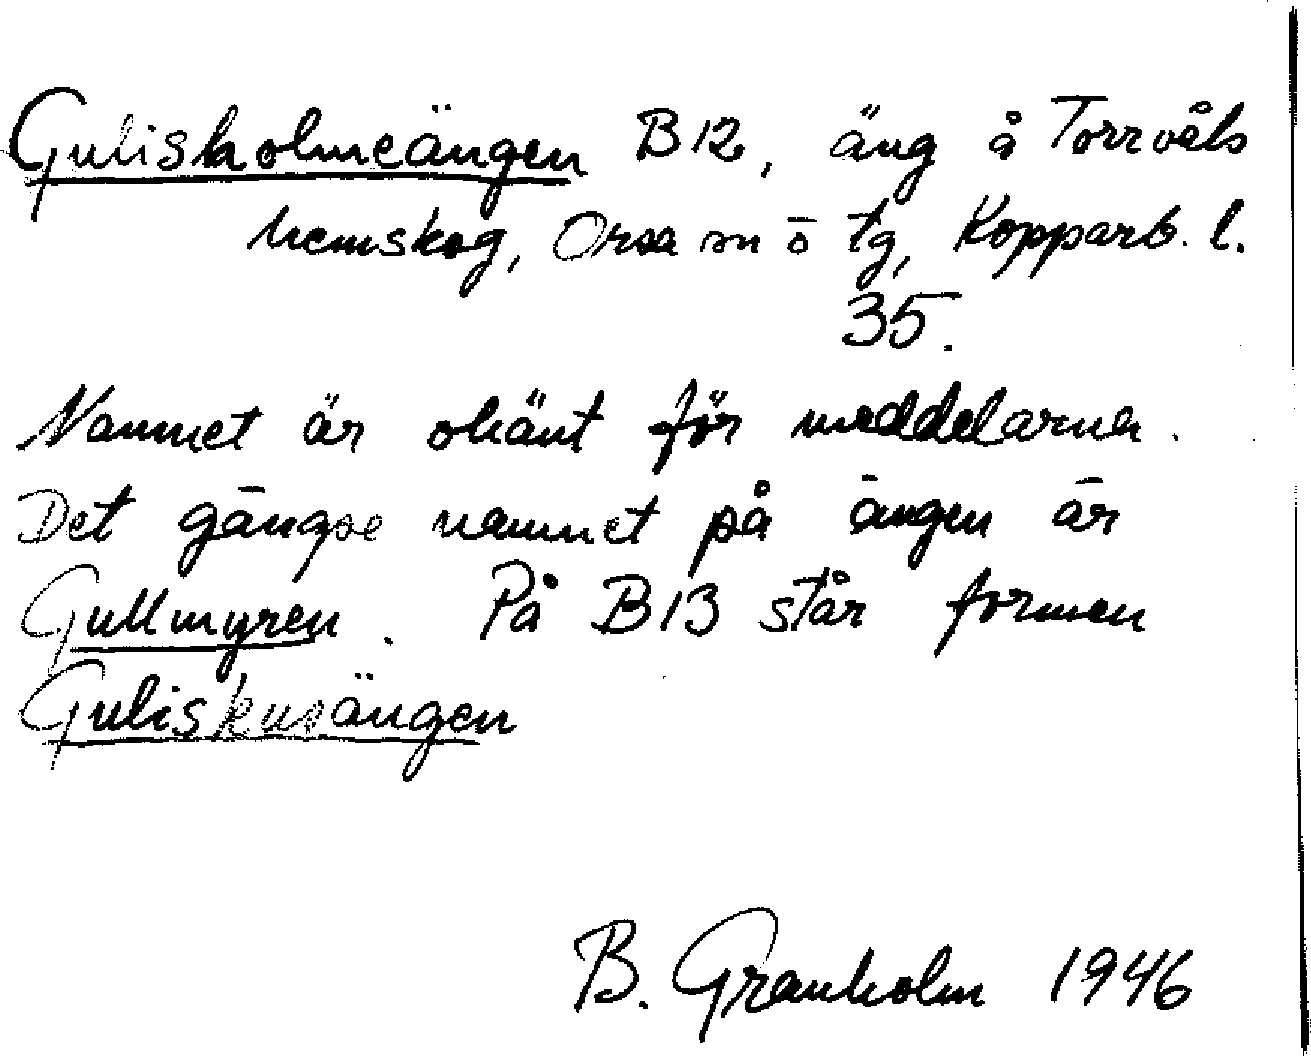 Guliskolmeängen B12, äng å Torrvåls
hemskog, Orsa sn ö tg, Kopparb. l.
35.
Namnet är okänt för meddelarna.
Det gängse namnet på ängen är
Gullmyren. På B13 står formen
Guliskusängen
B. Granholm 1946